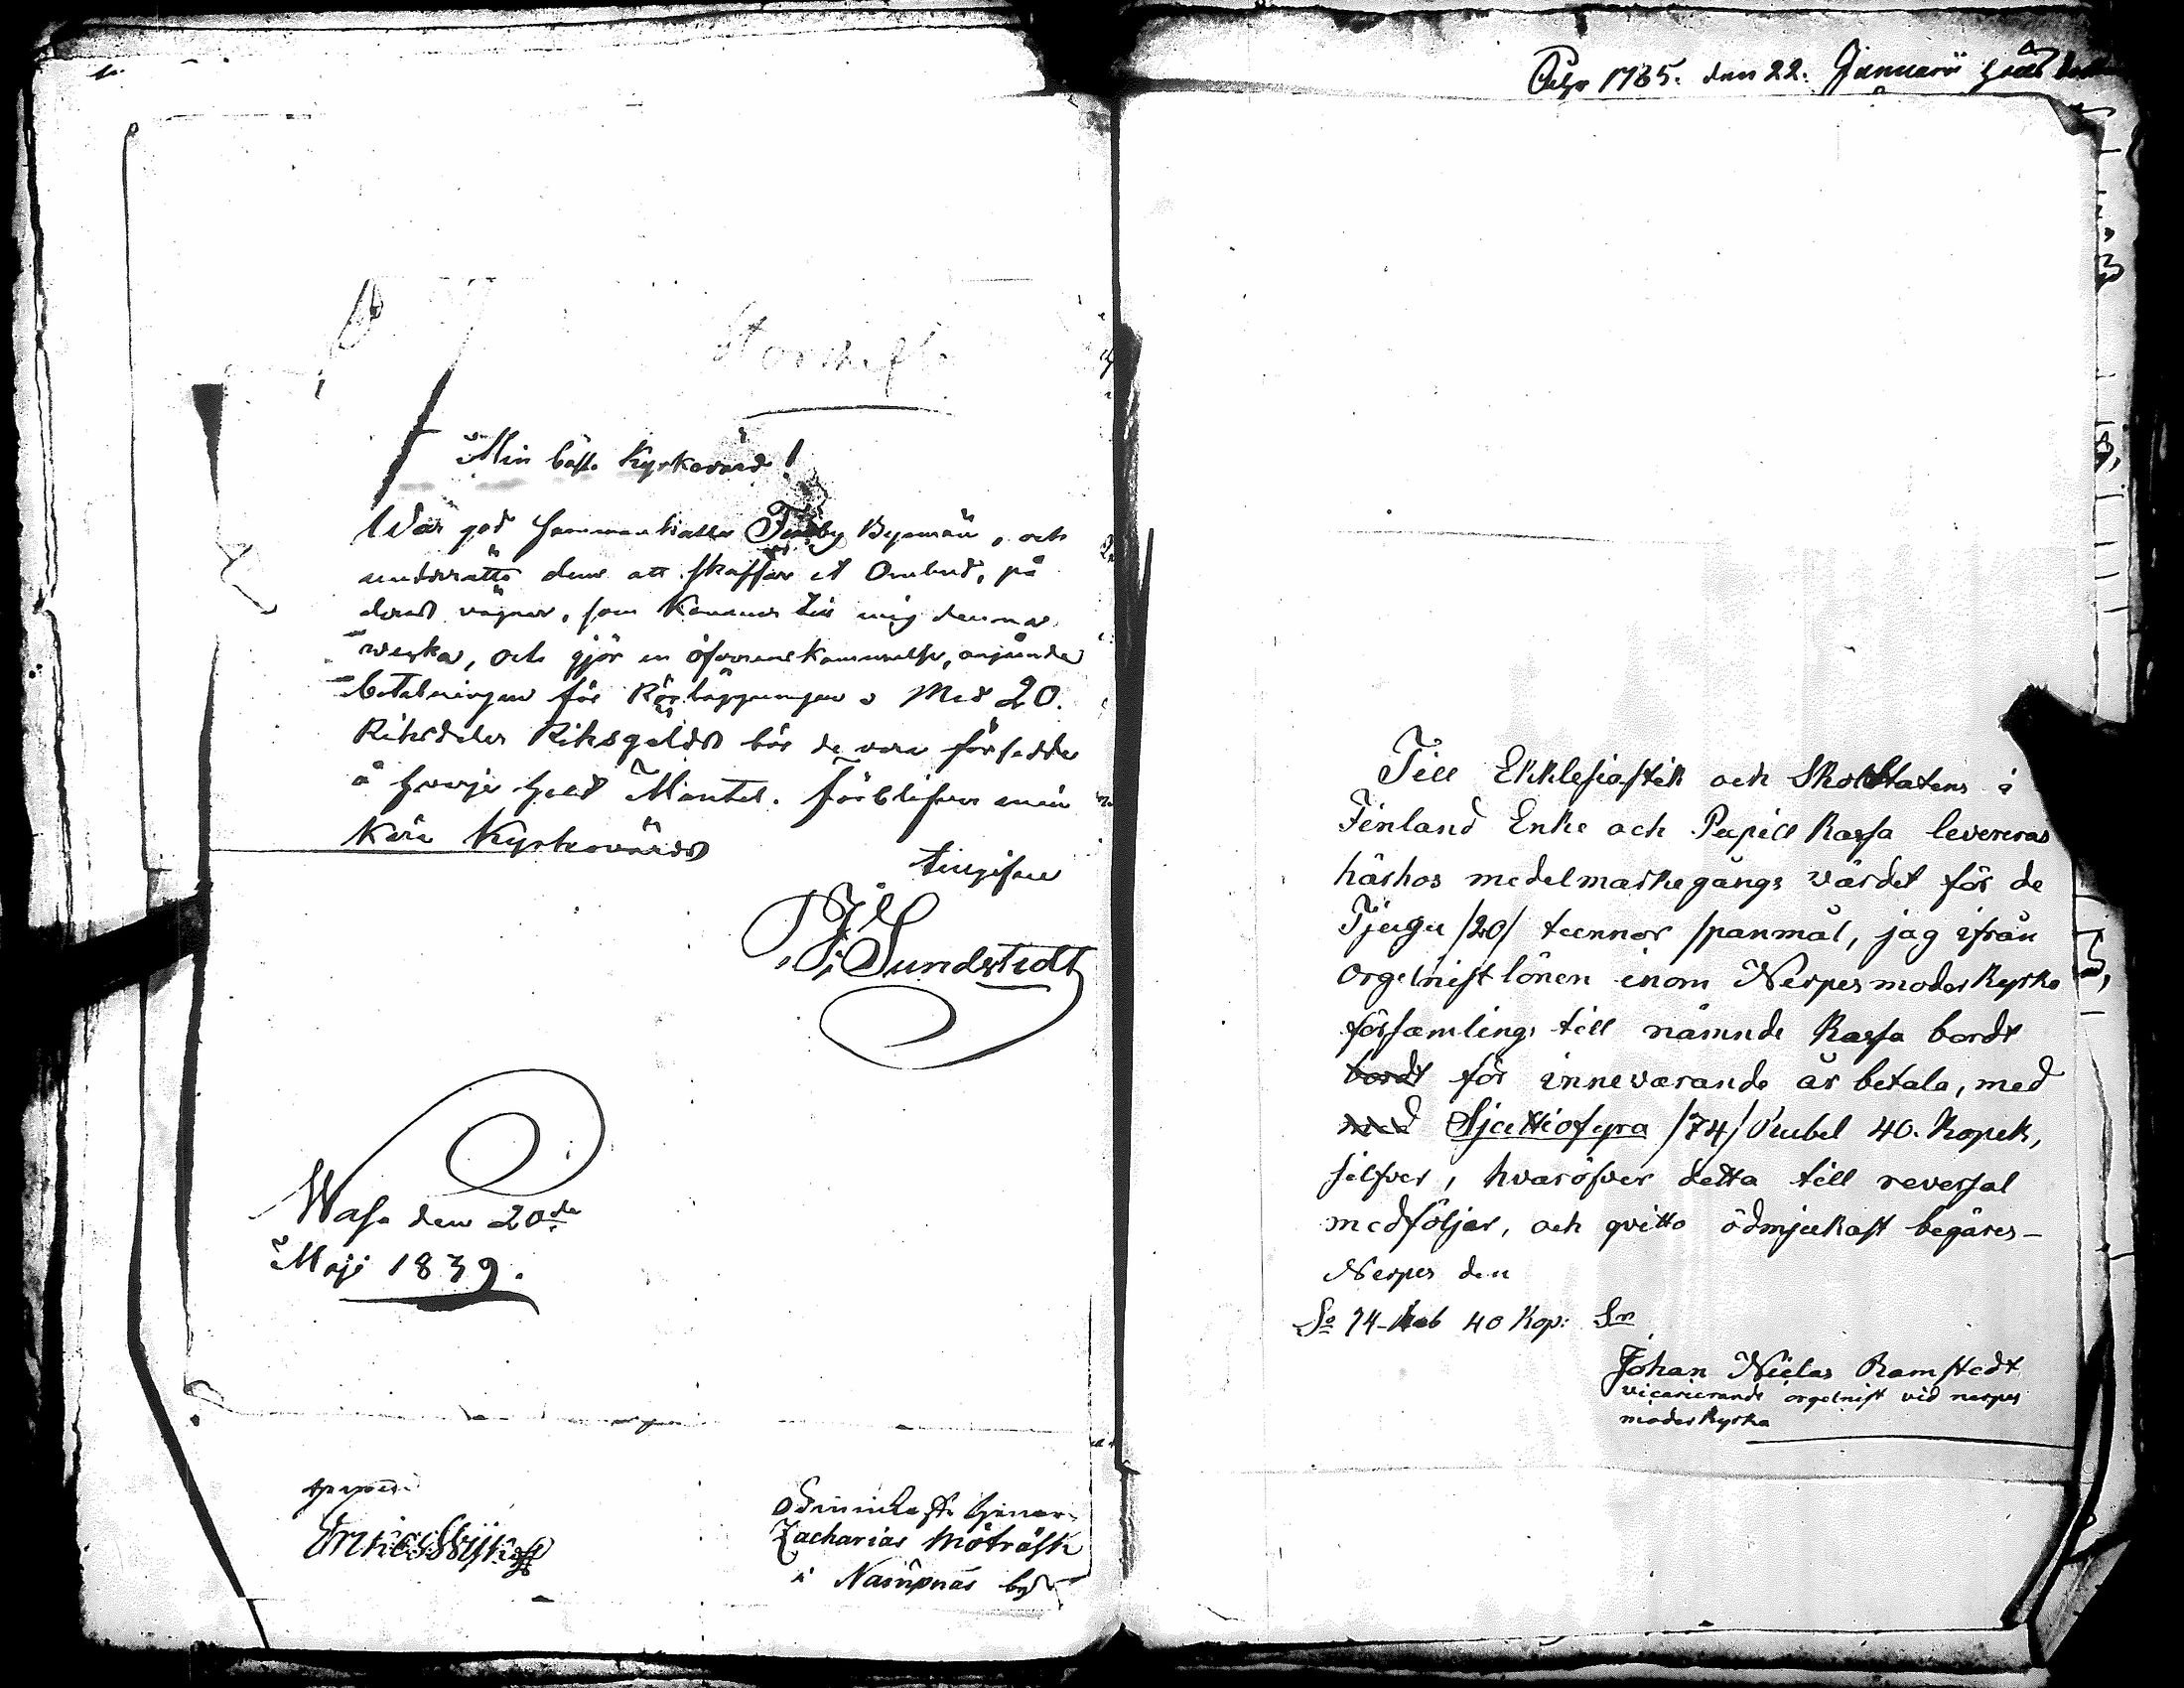 Storskifte
Min bäste Kyrkovärd!
War god sammankalla Tjuby Byamän, och
underrätta dem att skaffa et Ombud, på
deras vägnar, som kommer til mig denna
weeka, och gjör en öfverenskommelse, angående
betalningen för Rörläggningen. Med 20.
Riksdaler Riksgälds bör de vara försedde
å hvarje helt Mantal. Förblifver min
Kära Kyrkovärds
tingifne
J. Sundstedt
Wasa den 20de
Maji 1839.
ödmiukaste tjenare
Zacharias Moträsk
i Nämpnäs by
Åhr 1785. den 22. Januarii hölls
Till Ekklesiastik och Skolstatens i
Finland Enke och Pupill Kassa levereras
härhos medelmarkegångs värdet för de
Tjugu /20/ tunnor spanmål, jag ifrån
Orgelnistlönen inom Nerpes moderkyrko
församling till nämnde Kassa bordt
bordt för innevarande år betala, med
med Sjuttiofyra /74/ Rubel 40. Kopek,
silfver, hvaröfver detta till reversal
medföljer, och qvitto ödmjukast begäres-
Nerpes den
Sa 74 Rub 40 Kop: Sr
Johan Niclas Ramstedt
vicarierande orgelnist vid nerpes
moderkyrka